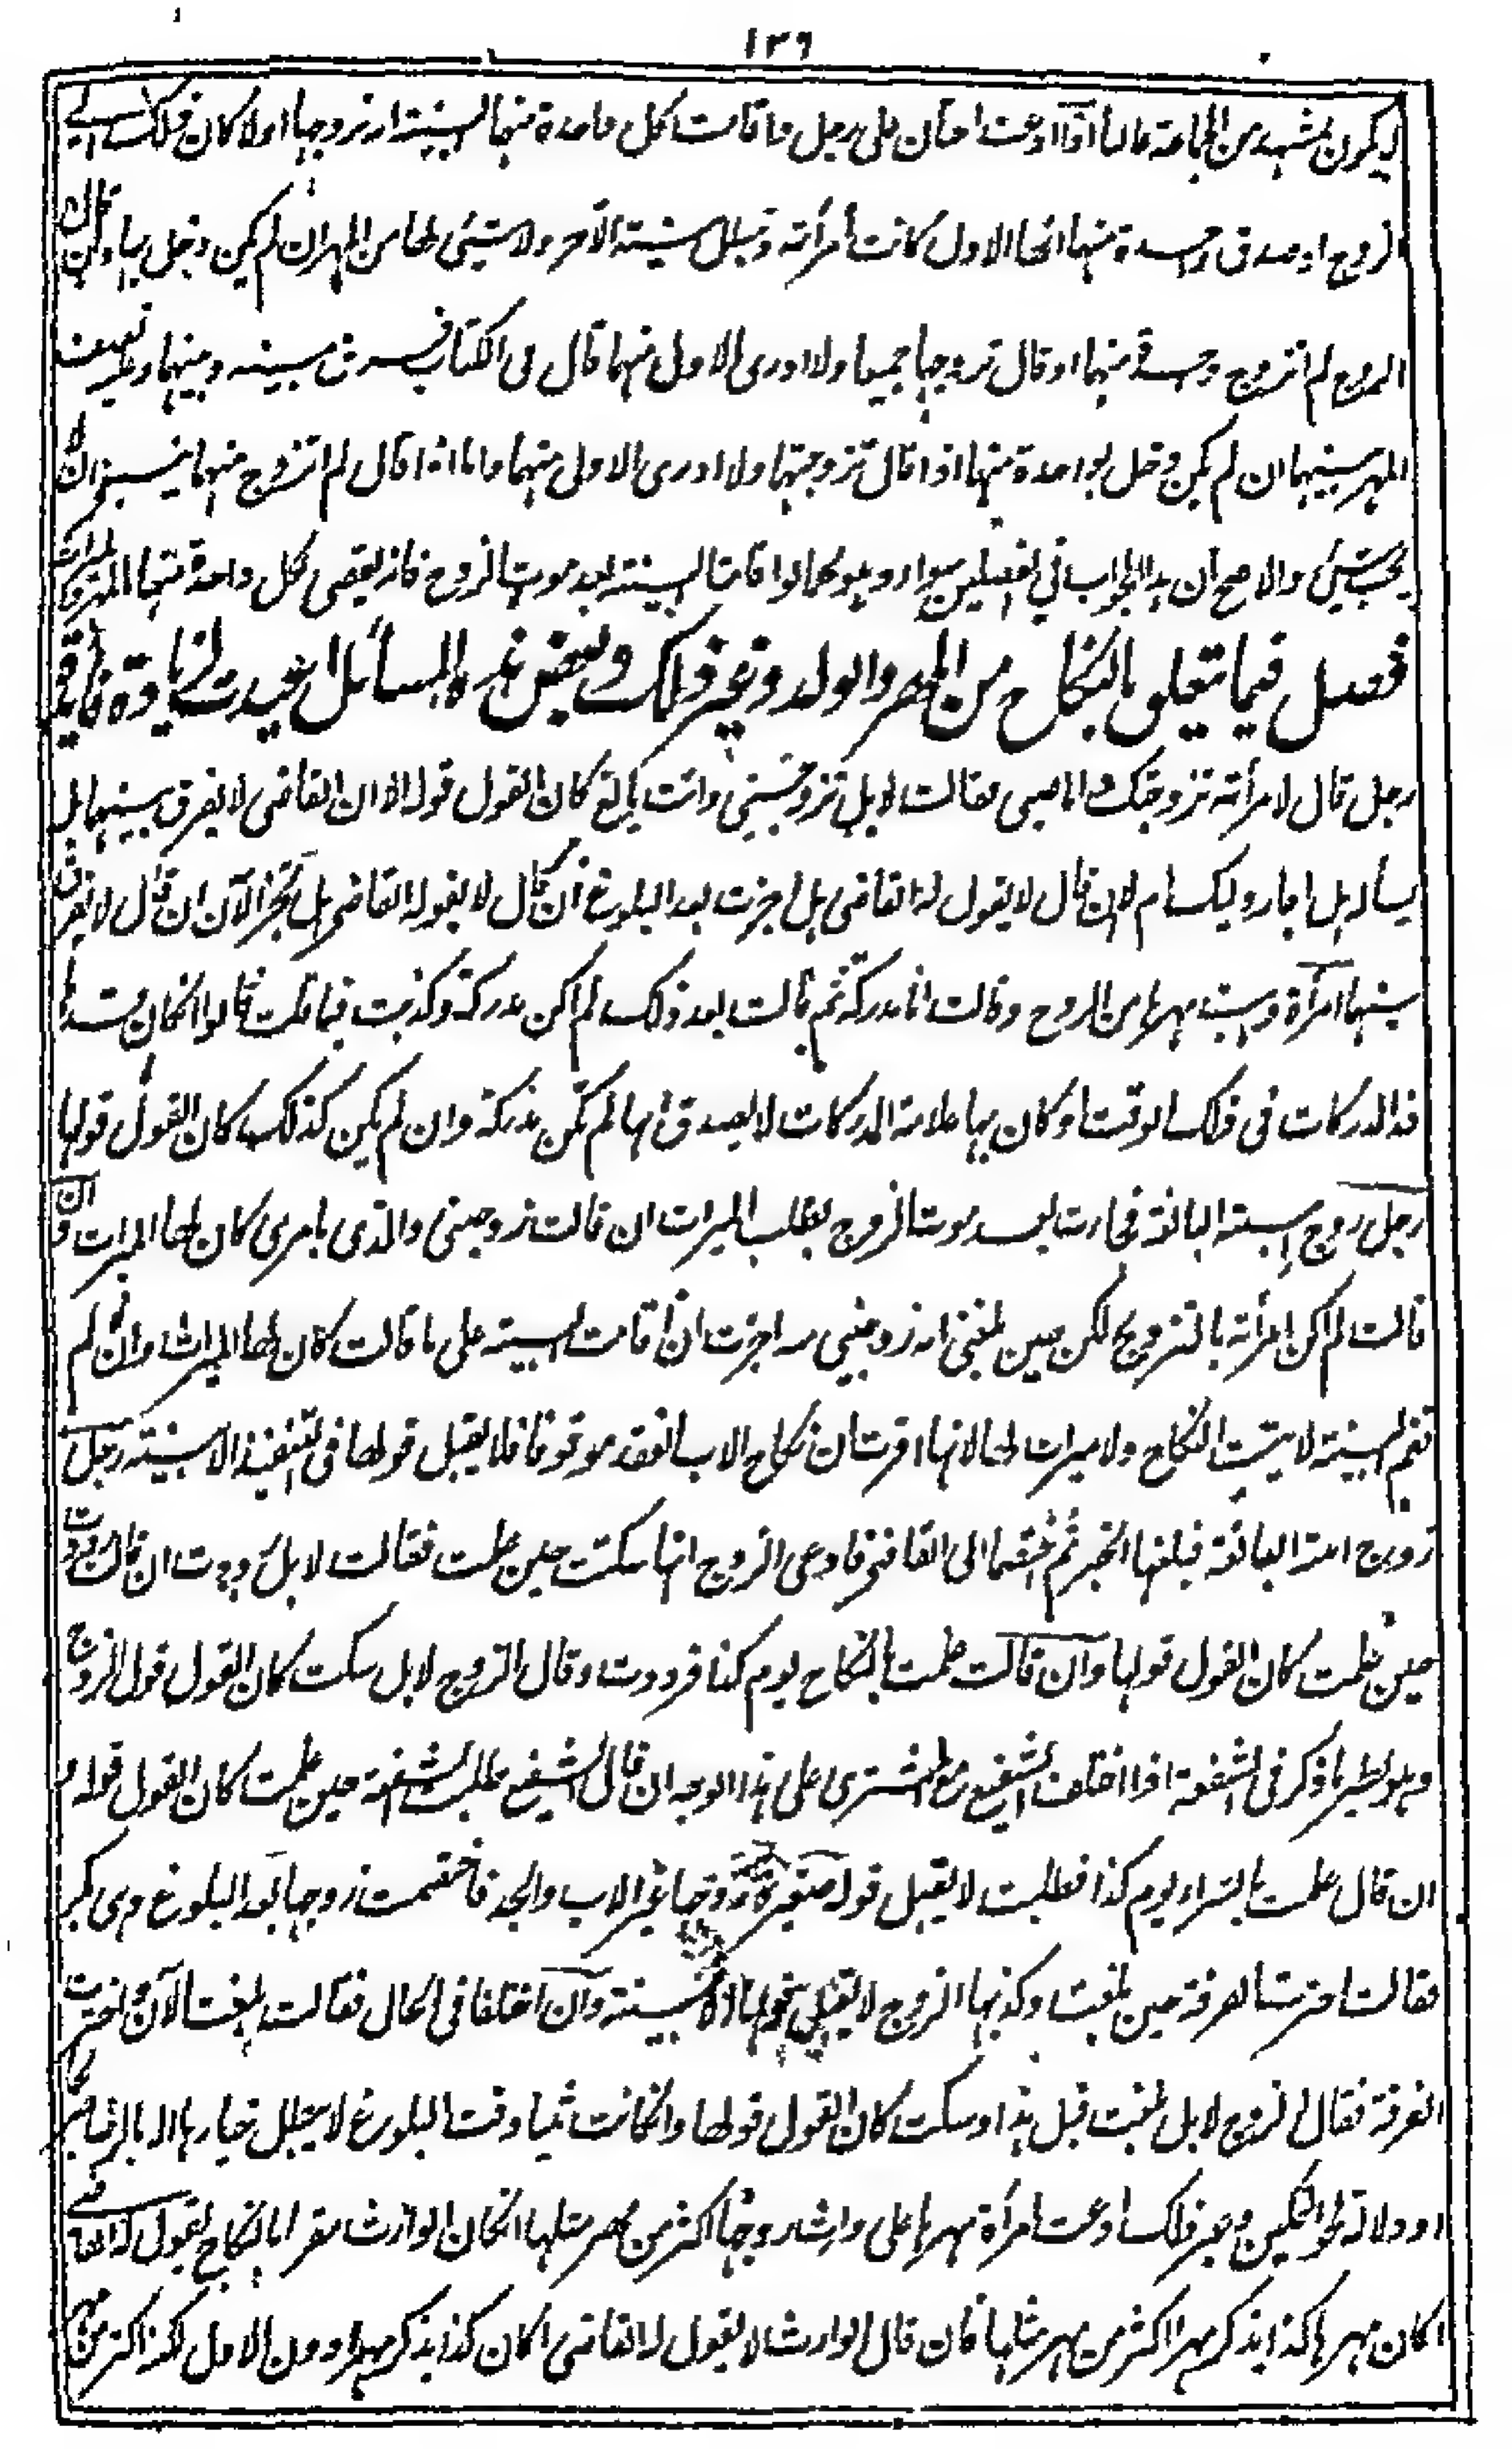 ١٣٦
ليكون لمشهد من الجامعة غالبا اذا ادعت اختان على رجل واقامت كل واحدة منهما البينة انه تزوجها اولا كان ذلك الى
الزوج ان صدق واحدة منهما انها الاول كانت امرأته وتبطل بينة الاخرى ولا شيء لها من المهر ان لم يكن دخل بها وان قال
الزوج لم اتزوج واحدة منهما او قال تزوجتهما جميعا ولا ادرى الاول منهما قال فى الكتاب فرق بينه وبينهما وعليه نصف
المهر بينهما ان لم يكن دخل بواحدة منهما اذا قال تزوجتهما ولا ادرى الاول منهما واما اذا قال لم اتزوج منهما ينبغى ان لا
يجب شيء والاصح ان هذا الجواب في الفصلين سواء وهو كما لو اقامتا البينة بعد موت الزوج فانه يقضى لكل واحدة منهما
فصل فيما يتعلق بالنكاح من المهر والولد وغير ذلك وبعض هذه المسائل اعيدت لزيادة فائدة
رجل قال لامرأته تزوجتك وانا صبى فقالت لا بل تزوجتني وانت بالغ كان القول قوله الا ان القاضى لا يفرق بينهما بل
يسأله هل اجاز وليك ام لا ان قال لا يقول له القاضى هل اجزت بعد البلوغ ان قال لا يقول له القاضى هل تجيز الآن ان قال لا يفرق
بينهما امرأة وهبت مهرها من الزوج وقالت انا مدركة ثم قالت بعد ذلك لم اكن مدركة وكذبت فيما قلت قالوا ان كان قدها
قد المدركات فى ذلك الوقت او كان بها علامة المدركات لا يصدق انها لم تكن مدركة وان لم يكن كذلك كان القول قولها
رجل زوج ابنته البالغة فجاءت بعد موت الزوج يطلب الميراث ان قالت زوجنى والدى بامرى كان لها الميراث وان
قالت لم اكن امرته بالتزويج لكن حين بلغنى انه زوجنى اجزت ان اقامت البينة على ما قالت كان لها الميراث وان لم
تقم البينة لا يثبت النكاح ولا ميراث لها لانها اقرت ان نكاح الاب انعقد موقوفا فلا يقبل قولها فى التنفيذ الا ببينة رجل
زوج ابنته البالغة فبلغها الخبر ثم اختصما الى القاضى فادعى الزوج انها سكتت حين علمت فقالت لا بل رددت ان قالت رددت
حين علمت كان القول قولها وان قالت علمت بالنكاح يوم كذا فرددت وقال الزوج لا بل سكت كان القول قول الزوج
وهو نظير ما ذكر فى الشفعة اذا اختلف الشفيع مع المشترى على هذا الوجه ان قال الشفيع طلبت الشفعة حين علمت كان القول قوله و
ان قال علمت بالشراء يوم كذا فطلبت لا يقبل قوله صغيرة زوجها غير الاب والجد فاختصمت زوجها بعد البلوغ وهى بكر
فقالت اخترت الفرقة حين بلغت وكذبها الزوج لا يقبل قولها الا ببينة وان اختلفا فى الحال فقالت بلغت الآن واخترت
الفرقة فقال الزوج لا بل بلغت قبل هذا وسكت كان القول قولها وان كانت ثيبا وقت البلوغ لا يبطل خيارها الا بالرضا صريحا
او دلالة نحو التمكين وغير ذلك ادعت امرأة مهرها على وارث زوجها اكثر من مهر مثلها ان كان الوارث مقرا بالنكاح يقول له القاضى
اكان مهرها كذا يذكر مهرا اكثر من مهر مثلها فان قال الوارث لا يقول له القاضى اكان كذا يذكر مهرا دون الاول لكنه اكثر من مهر